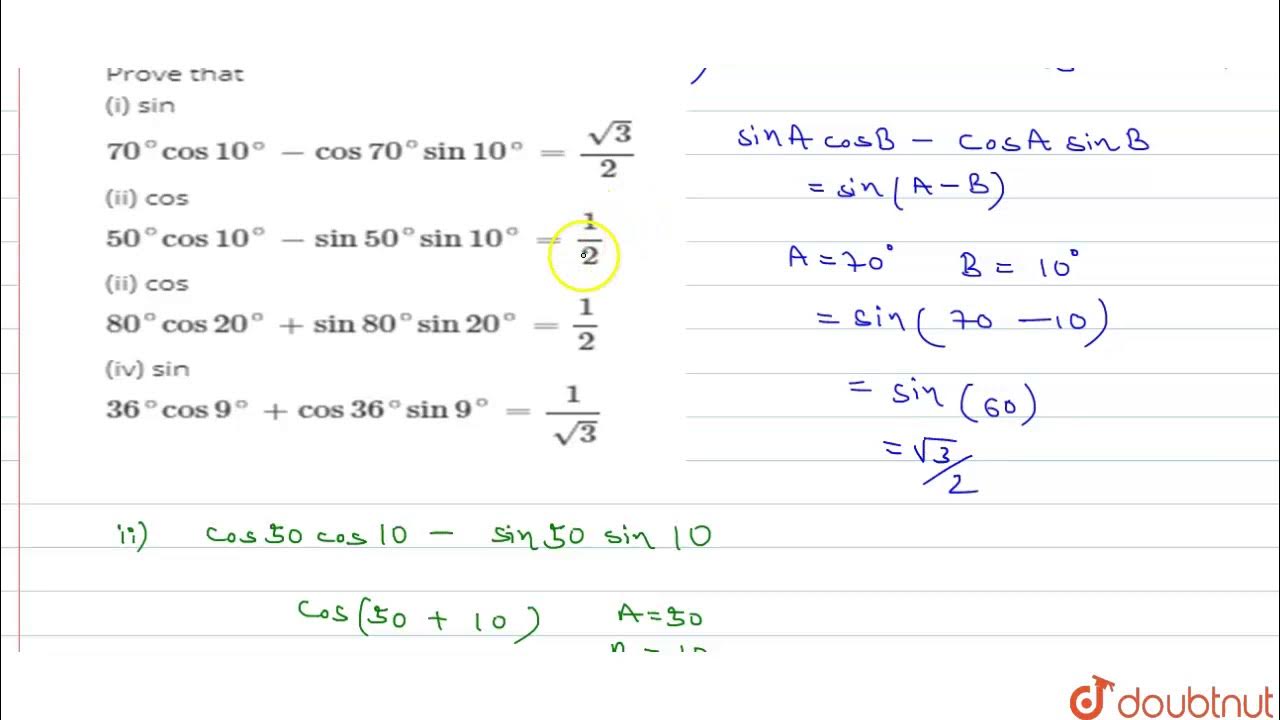 Prove that
(i) sin
70° cos 10° − cos 70° sin 10° = √3/2
(ii) cos
50° cos 10° − sin 50° sin 10° = 1/2
(ii) cos
80° cos 20° + sin 80° sin 20° = 1/2
(iv) sin
36° cos 9° + cos 36° sin 9° = 1/√3
sinA cosB − cosA sinB
= sin(A−B)
A = 70° B = 10°
= sin(70 − 10)
= sin(60)
= √3/2
ii) cos50 cos10 − sin50 sin10
cos(50 + 10) A=50
doubtnut